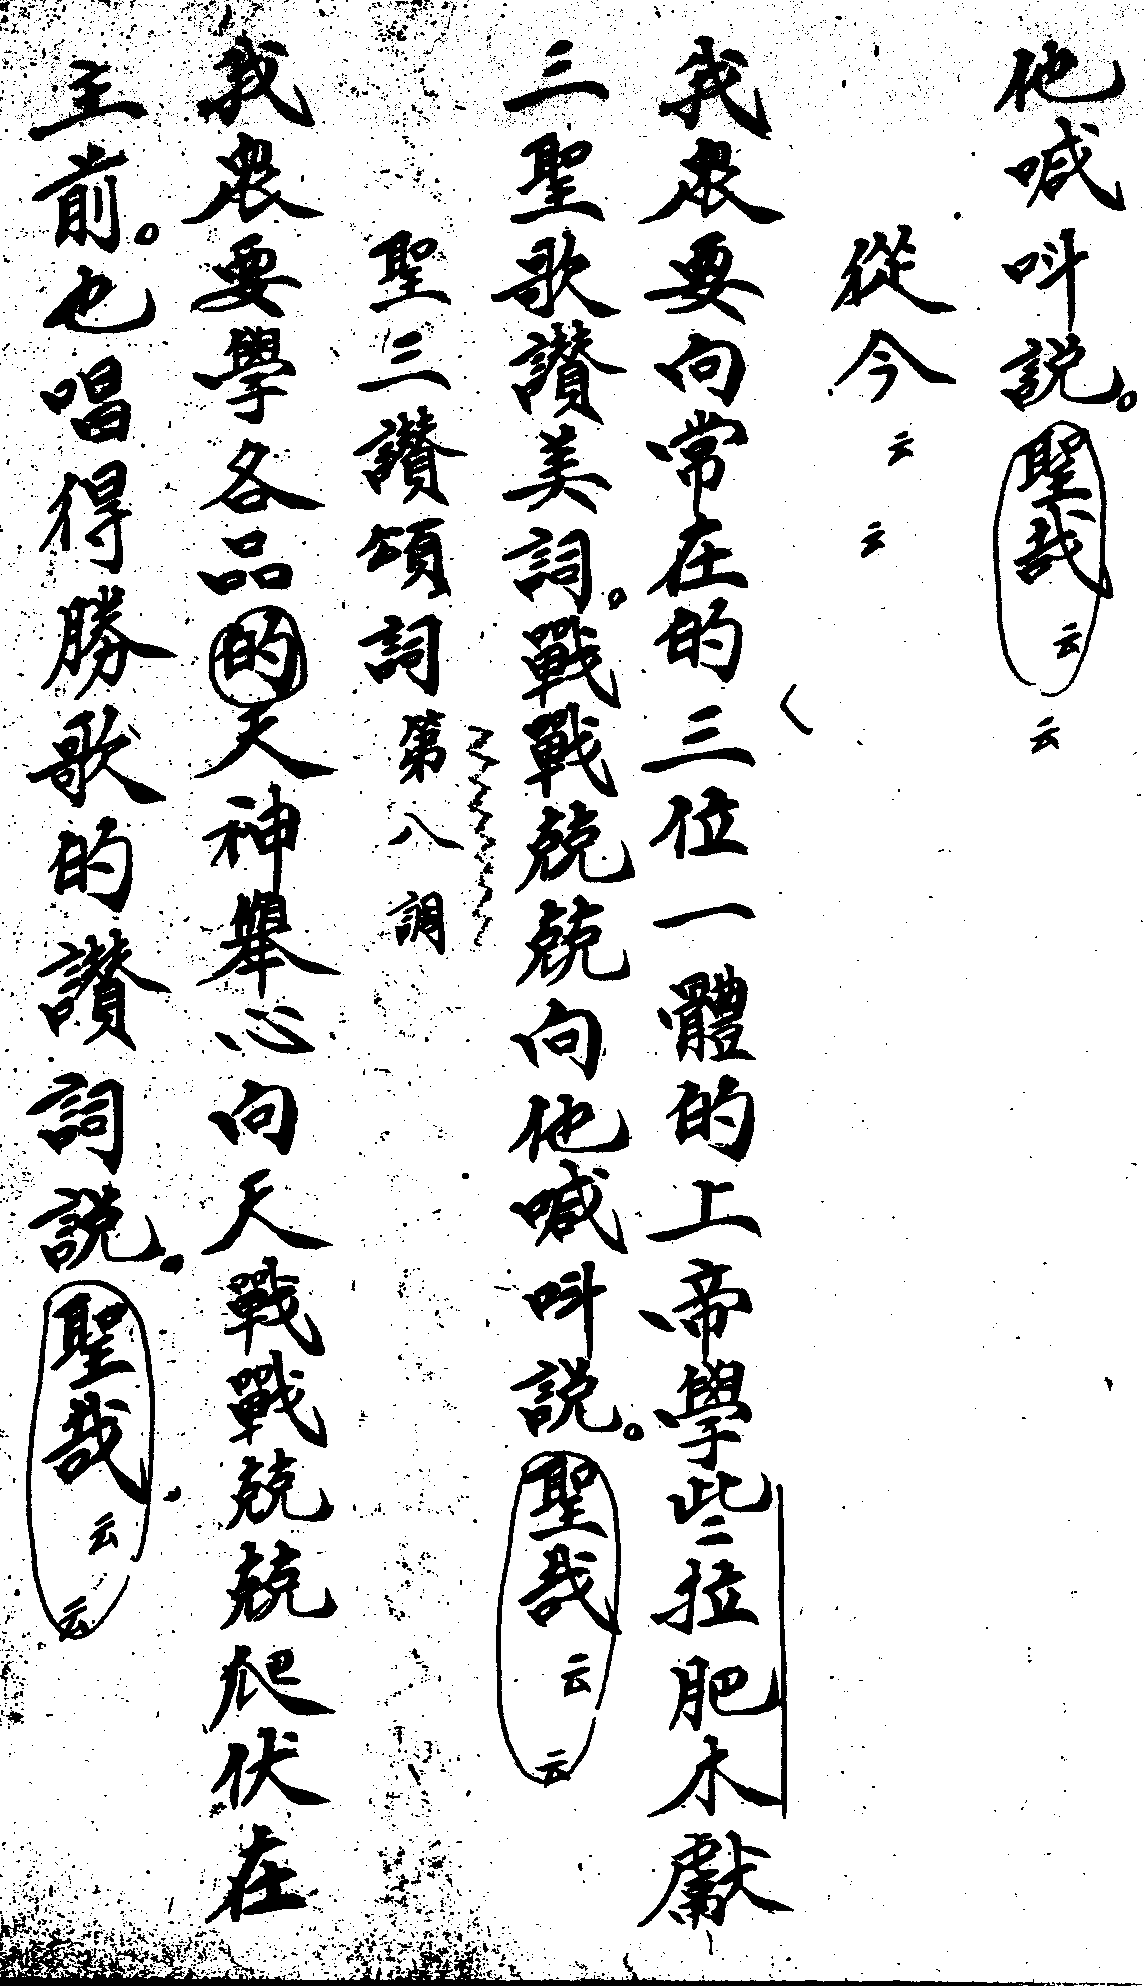 他喊叫説。聖哉云云
從今云云
我衆要向常在的三位一體的上帝學些拉肥木獻
三聖歌讚美詞。戰戰兢兢向他喊叫説。聖哉云云
聖三讚頌詞第八調
我衆要學各品的天神舉心向天戰戰兢兢爬伏在
主前。也唱得勝歌的讚詞説。聖哉云云